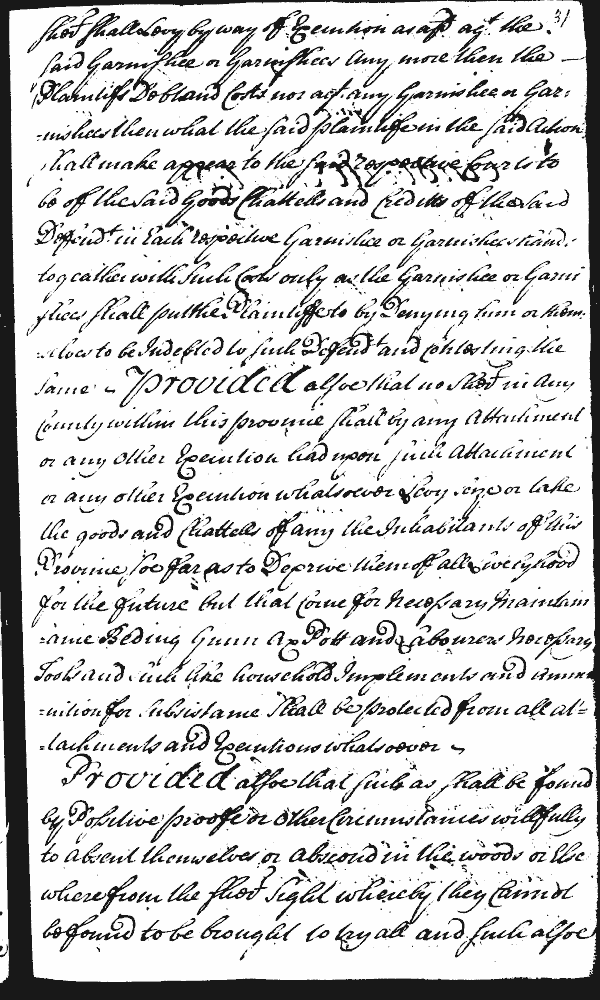 31
sherr shall Levy by way of Execution as afd agt the
said Garnishee or Garnishees Any more then the —
Plaintifs Debt and Costs nor agt any Garnishee or Gar:
=nishees then what the said plaintife in the said Action
shall make appear to the said respective Courts to
be of the said Goods Chattells and Creditts of the said
Deffendt in Each respective Garnishee or Garnishees hands:
togeather with such Costs only as the Garnishee or Garni
shees shall putt the Plaintiffe to by Denying him or them:
=selves to be Indebted to such Defendt and Contesting the
same ~ Provided alsoe that no sherr in any
County within this province shall by any Attachment
or any other Execution had upon such Attachment
or any other Execution whatsoever Levy seize or take
the goods and Chattells of any the Inhabitants of this
Province soe far as to Deprive them of all Livelyhood
for the future but that Corne for necessary Maintain
=ance Beding Gunn Ax Pott and Labourers necessary
Tools and such like household Implements and ammu
=nition for subsistance shall be protected from all at=
=tachments and Executions whatsoever ~
Provided alsoe that such as shall be found
by Positive proofe or other Circumstances willfully
to absent themselves or abscond in the woods or Else
where from the sherr sight whereby they Cannot
be found to be brought to tryall and such alsoe